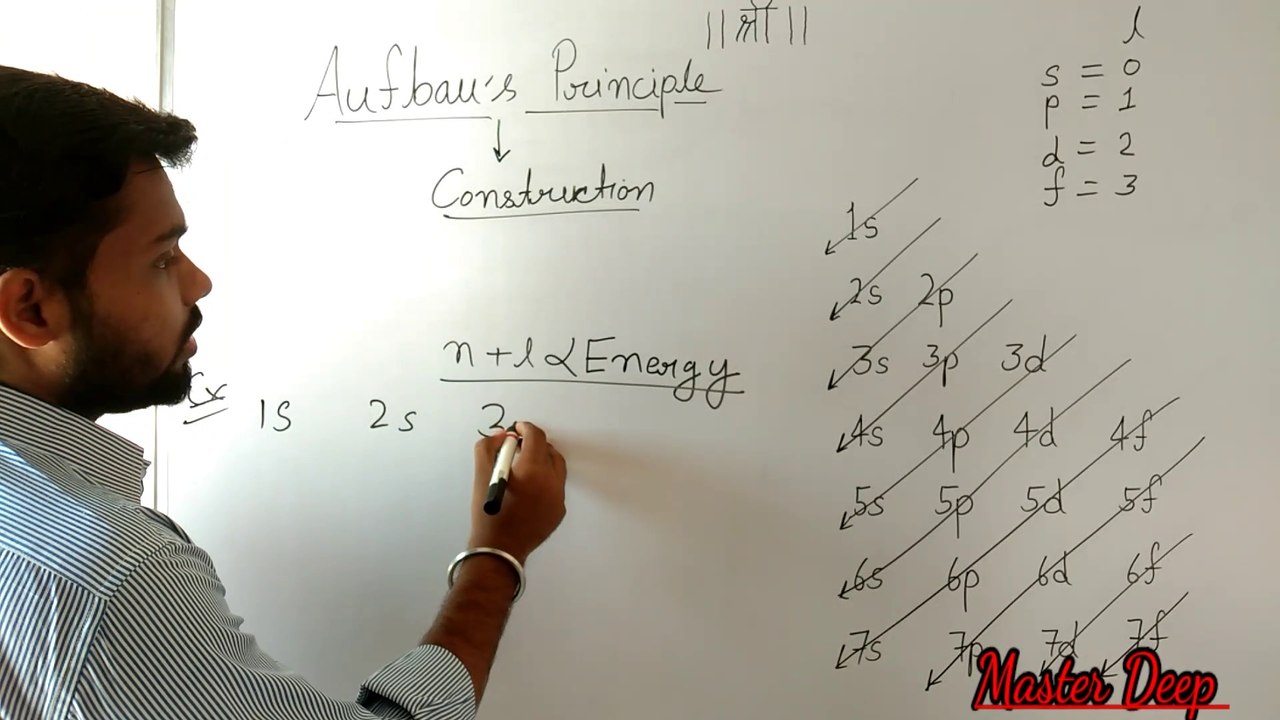 || श्री ||
Aufbau's Principle
↓
Construction
n + l α Energy
Ex 1s 2s 3
l
s = 0
p = 1
d = 2
f = 3
1s
2s 2p
3s 3p 3d
4s 4p 4d 4f
5s 5p 5d 5f
6s 6p 6d 6f
7s 7p 7d 7f
Master Deep